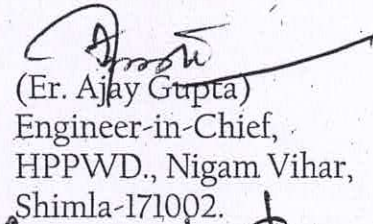 (Er. Ajay Gupta)
Engineer-in-Chief,
HPPWD., Nigam Vihar,
Shimla-171002.